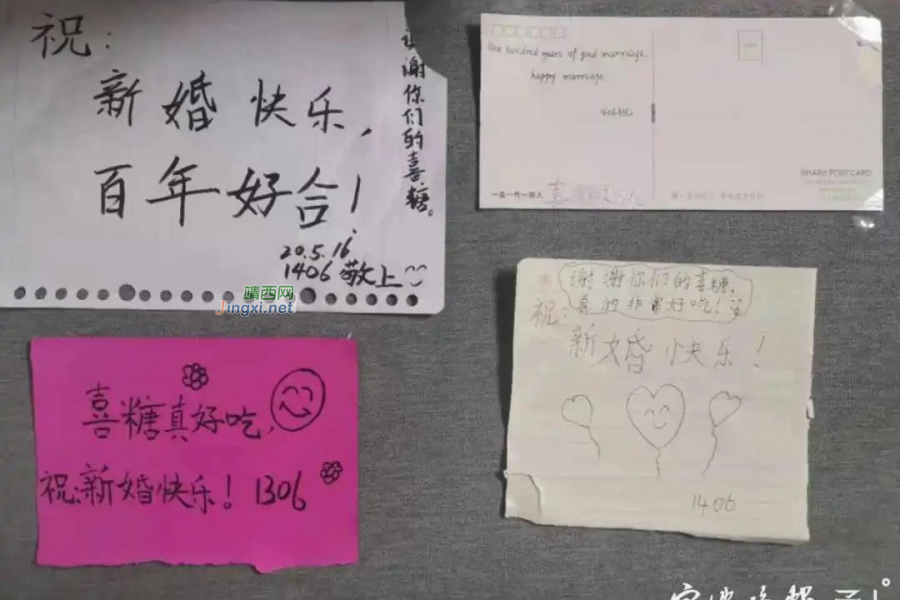 祝：
新婚快乐，
百年好合！
谢你们的喜糖。
20.5.16
1406敬上
靖西网
Jingxi.net
One hundred years of good marriage.
happy marriage
SHARE POSTCARD
一生一代一双人
喜糖真好吃，
祝新婚快乐！1306
谢谢你们的喜糖，
真的非常好吃！
祝：
新婚快乐！
1406